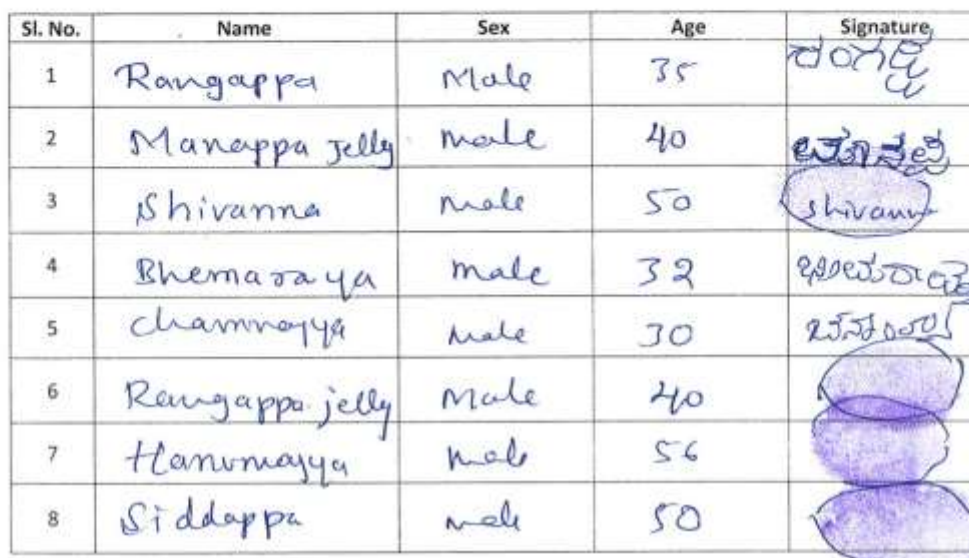 Sl. No. Name Sex Age Signature
1 Rangappa Male 35
2 Manappa Jelly male 40
3 Shivanna male 50 Shivann
4 Bhemaraya male 32
5 channayya male 30
6 Rangappa jelly Male 40
7 Hanumayya male 56
8 Siddappa male 50